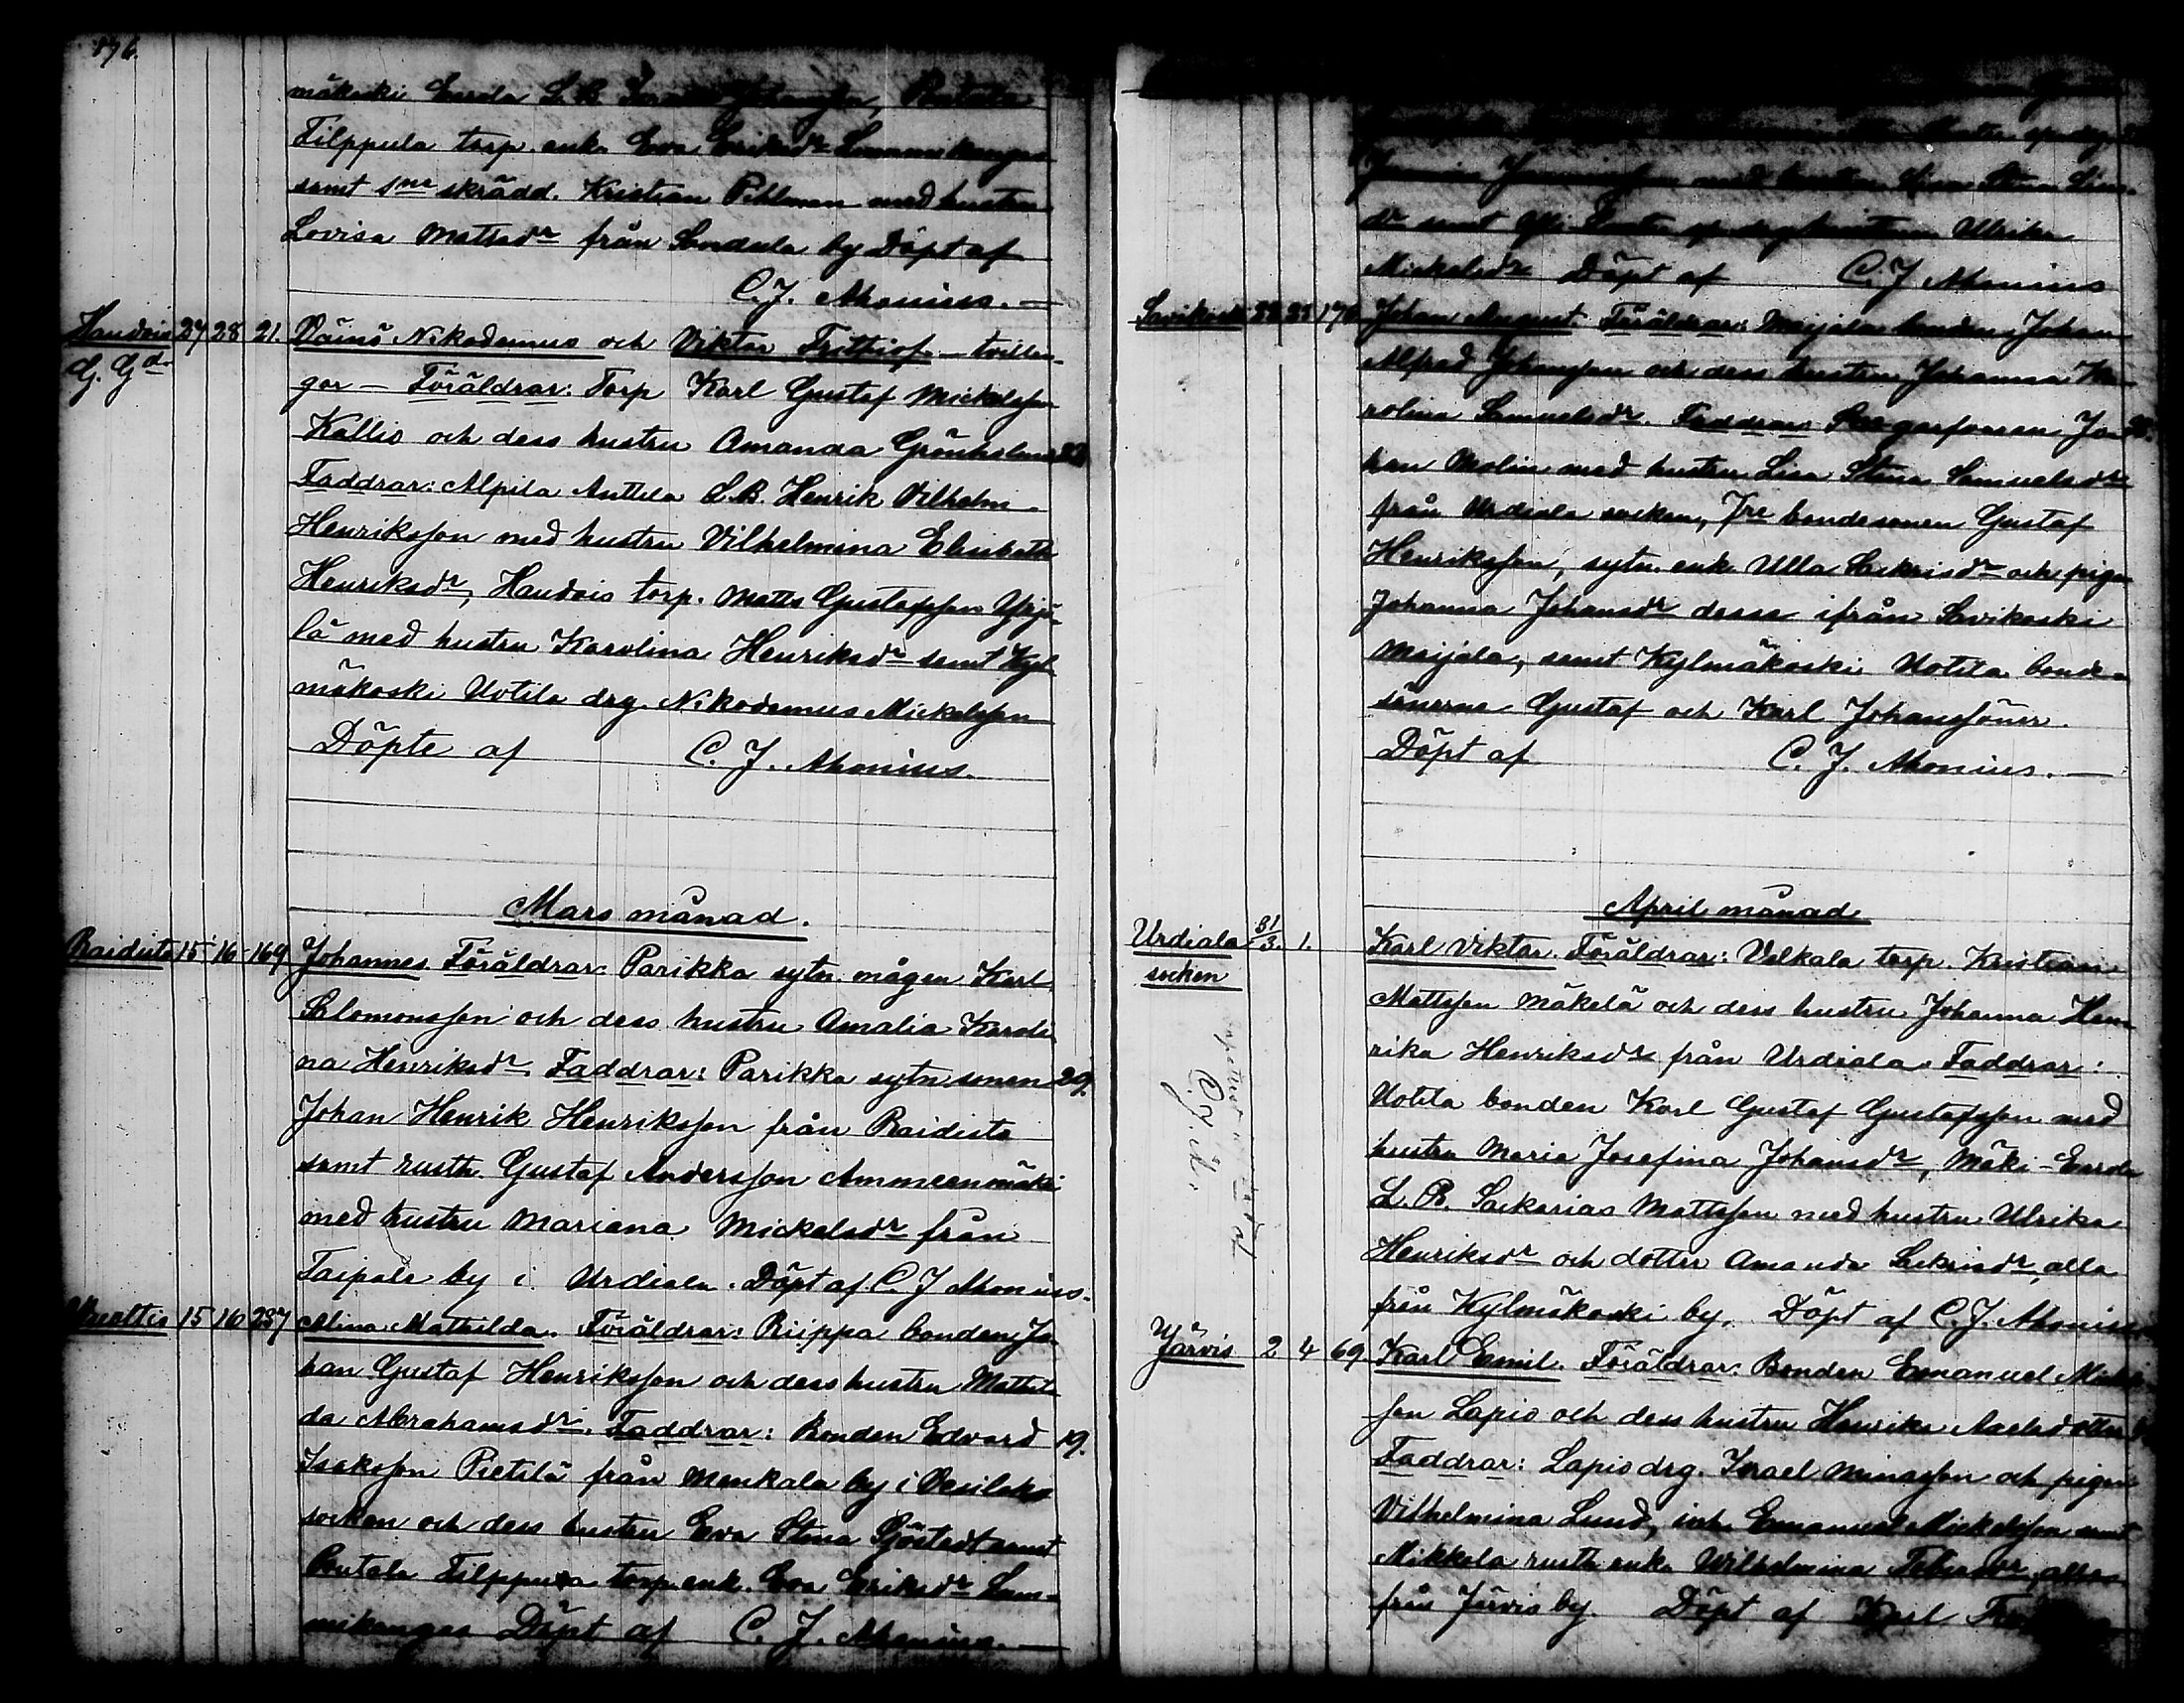 176.
mäkoski Eerola L. B. Johansson, Pentala
Filppula torp. enk. Eva Eriksdr Lammikangas
samt sne skrädd. Kristian Pihlman med hustru
Lovisa Mattsdr från by Döpt af
C. J. Ahonius. —
Haudois 27 28 21. Väinö Nikodemus och Viktor Frithiof — tvillin-
G. Gd. gar — Föräldrar: Torp Karl Gustaf Mickelsson
Kallio och dess hustru Amanda Grönholm 23
Faddrar: Alpila Anttila L. B. Henrik Vilhelm
Henriksson med hustru Vilhelmina Elisabeth
Henriksdr, Haudois torp. Matts Gustafsson Yrjö-
lä med hustru Karolina Henriksdr samt Kyl-
mäkoski Uotila drg. Nikodemus Mickelsson
Döpte af C. J. Ahonius.
Mars månad.
Raidisto 15 16 169 Johannes. Föräldrar: Parikka sytn. mågen Karl
Salomonsson och dess hustru Amalia Karoli-
na Henriksdr. Faddrar: Parikka sytn sonen 29.
Johan Henrik Henriksson från Raidisto
samt rusth. Gustaf Andersson Ammeenmäki
med hustru Mariana Mickelsdr från
Taipale by i Urdiala. Döpt af C. J Ahonius.
15 16 237 Alina Mathilda. Föräldrar: Riippa bonden Jo-
han Gustaf Henriksson och dess hustru Mathil-
da Abrahamsdr. Faddrar: Bonden Edvard 19.
Isaksson Pietilä från Menkala by i Vesilaks
socken och dess hustru Eva Stina Sjöstedt samt
Pentala Filppula torp. enk. Eva Eriksdr Lam-
mikangas Döpt af C. J. Ahonius. —
med hustru Lisa Stina
dr samt Ulrika
Mickelsdr Döpt af C. J Ahonius
Savikoski 22 23 170 Johan August. Föräldrar: Maijala bonden Johan
Alfred Johansson och dess hustru Johanna Ka-
rolina Samuelsdr. Faddrar: Jo-
han Molin med hustru Lisa Stina Samuelsdr
från Urdiala socken, Jre bondesonen Gustaf
Henriksson, sytn. enk. Ulla Sakrisdr och pigan
Johanna Johansdr dessa ifrån Savikoski
Maijala, samt Kylmäkoski Uotila bonde-
sönerna Gustaf och Karl Johanssöner.
Döpt af C. J. Ahonius. —
April månad
Urdiala 31/3. 1. Karl Viktor. Föräldrar: Velkala torp. Kristian
socken Mattsson Mäkelä och dess hustru Johanna Hen-
rika Henriksdr från Urdiala. Faddrar:
Uotila bonden Karl Gustaf Gustafsson med
hustru Maria Josefina Johansdr, Mäki-Eerola
L. B. Sakarias Mattsson med hustru Ulrika
Henriksdr och dotter Amanda Sakrisdr, alla
från Kylmäkoski by. Döpt af C. J. Ahonius
Järvis 2 4 69 Karl Emil. Föräldrar: Bonden Emanuel
son Lapio och dess hustru Henrika Axelsdotter
Faddrar: Lapio drg. Israel Minasson och pigan
Vilhelmina Lund, inh. Emanuel Mickelsson samt
Mikkola rusth. enk. Wilhelmina alla
från Järvis by. Döpt af Karl